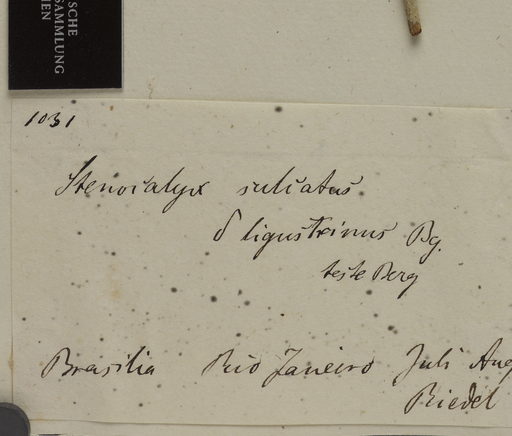 SCHE
SAMMLUNG
IEN
1031
Stenocalyx sulcatus
δ ligustrinus Bg.
teste Berg
Brasilia Rio Janeiro Juli Aug
Riedel